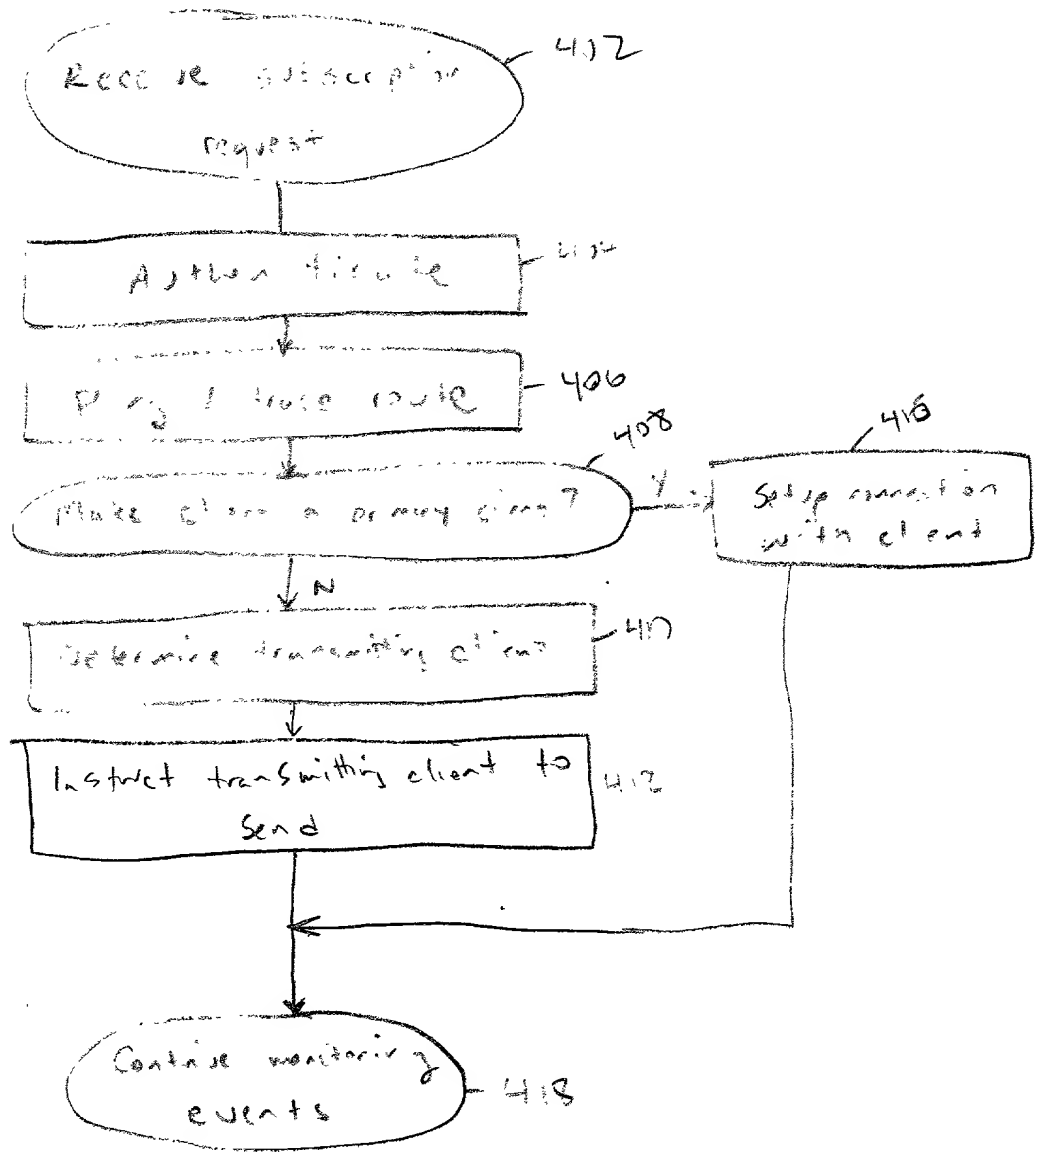 402
Receive subscription
request
404
Authenticate
Ping / trace route
406
408
416
Make client a primary client?
Y
Setup connection
with client
N
Determine transmitting client
410
Instruct transmitting client to
send
412
Continue monitoring
events
418